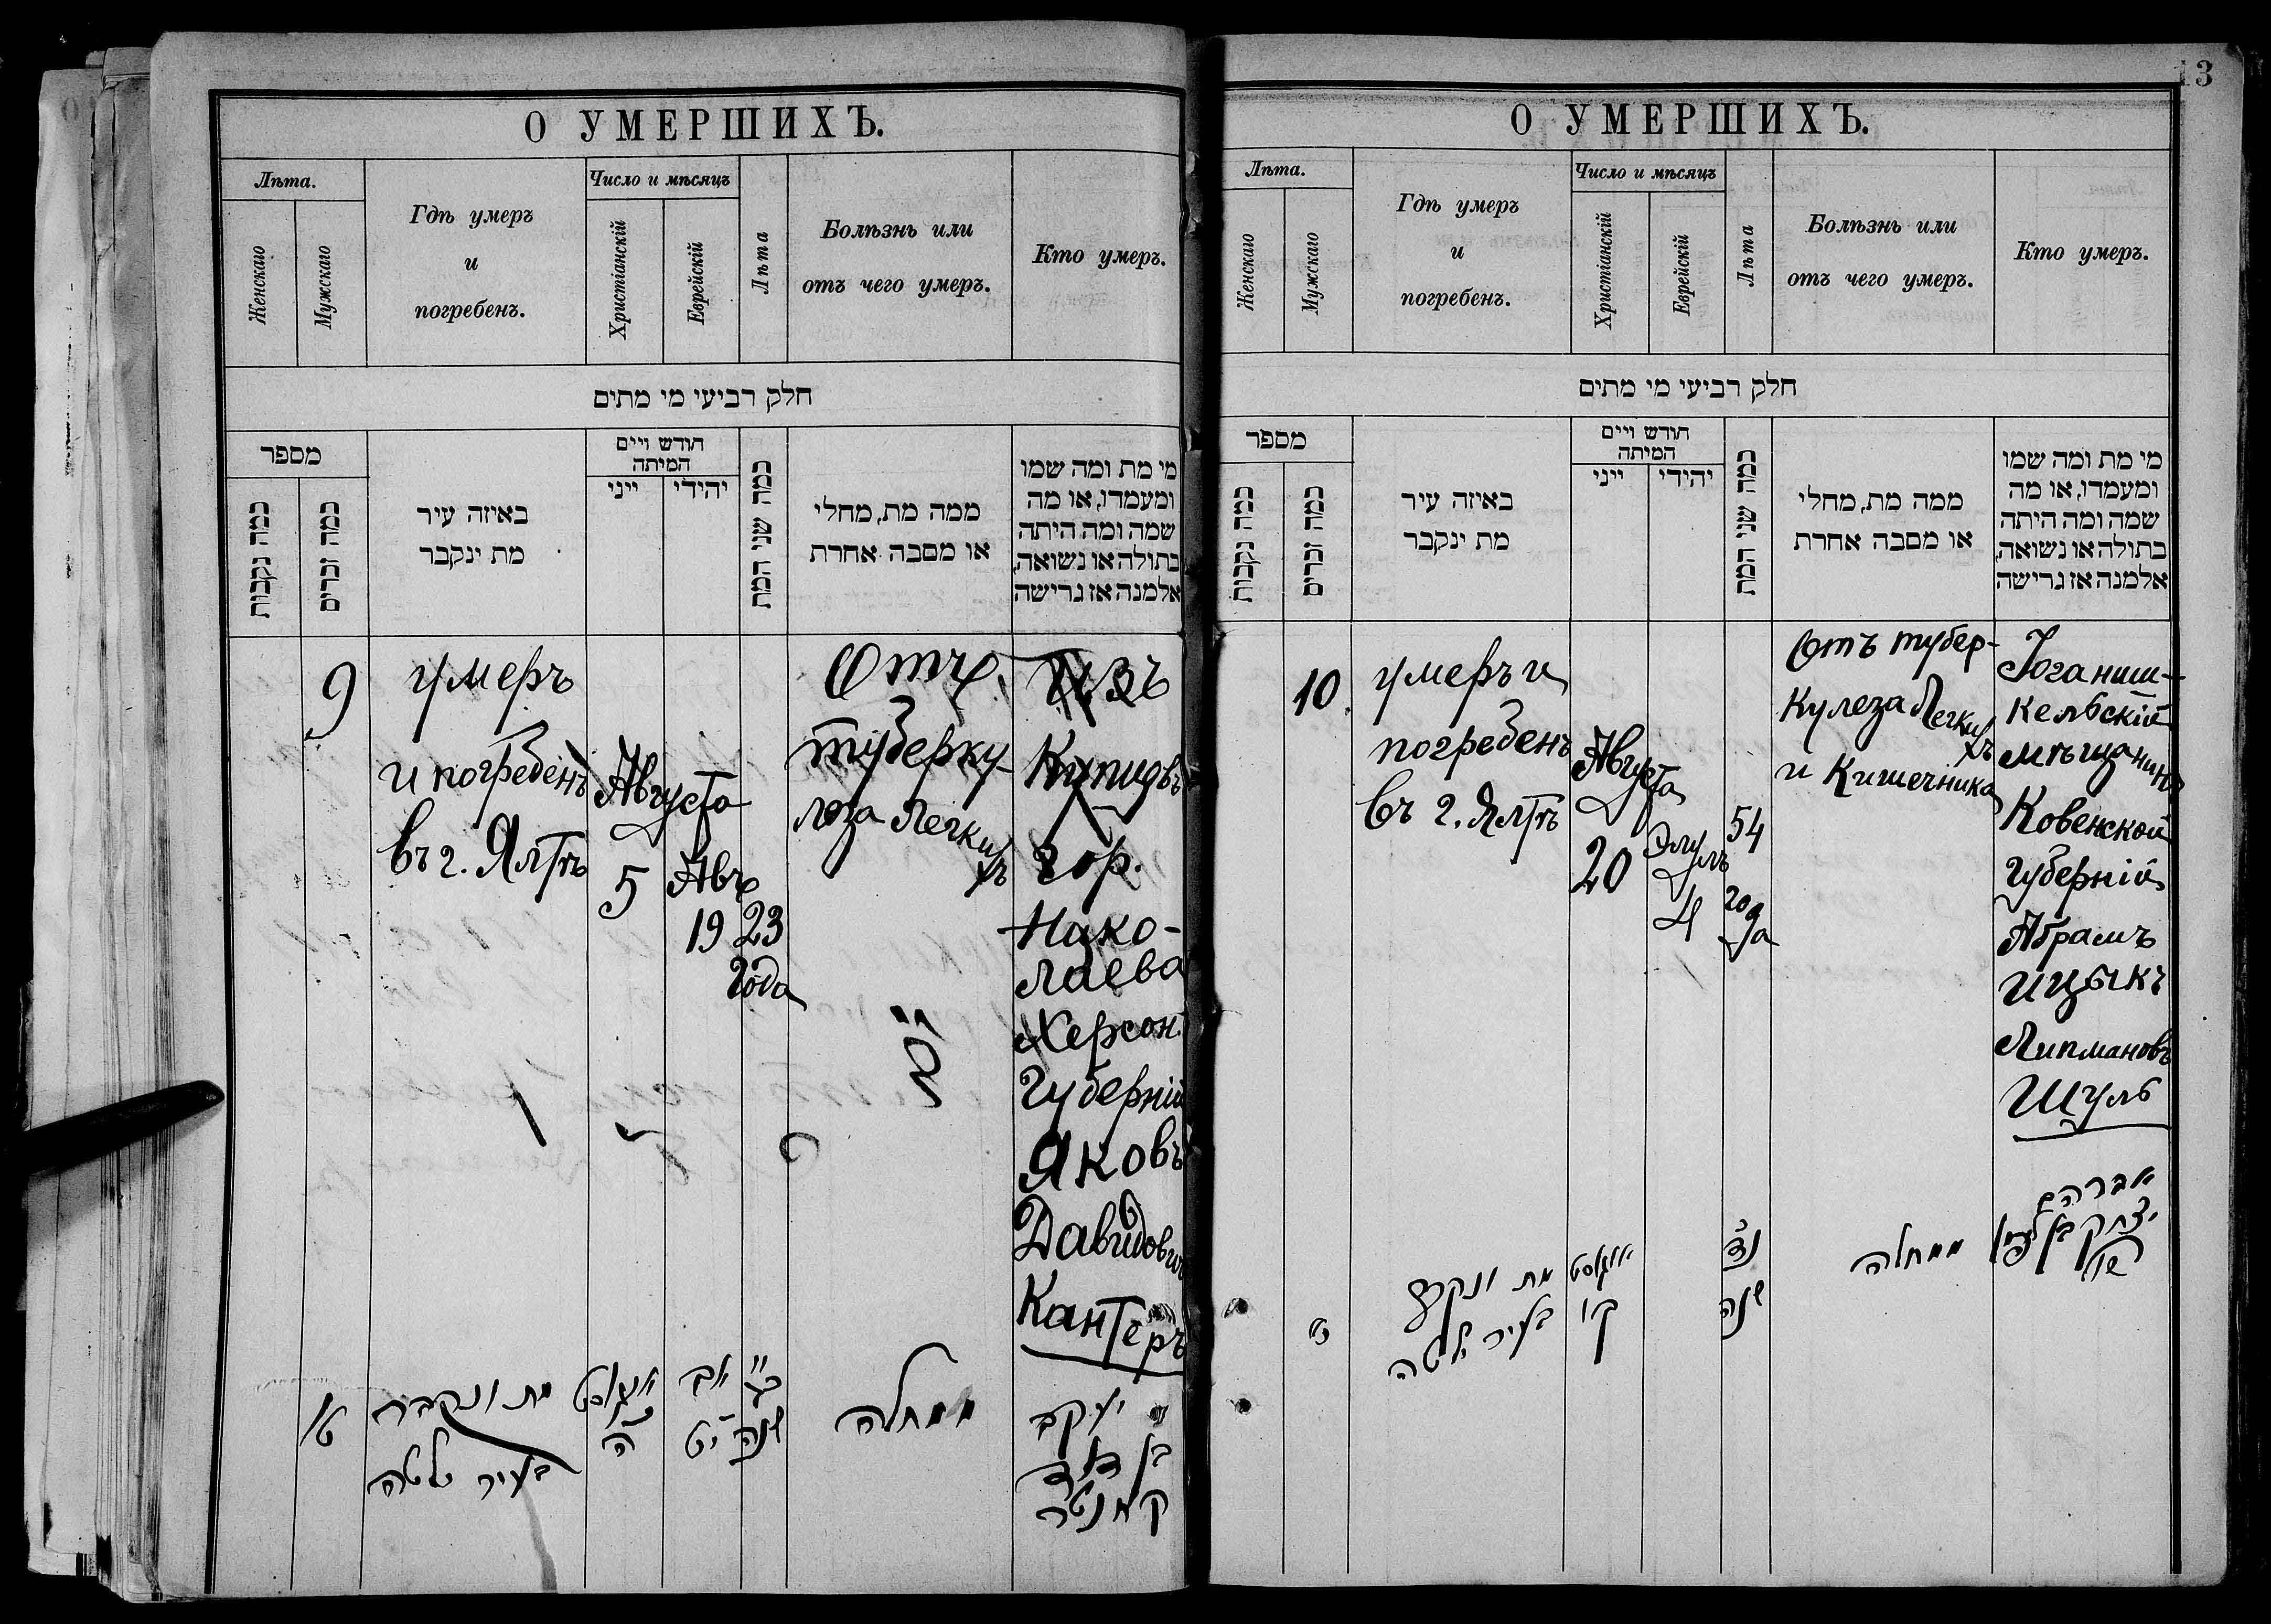 О УМЕРШИХЪ.
Лѣта.
Женскаго
Мужскаго
Гдѣ умеръ
и
погребенъ.
Число и мѣсяцъ
Христіанскій
Еврейскій
Лѣта
Болѣзнь или
отъ чего умеръ.
Кто умеръ.
חלק רביעי מי מתים
מספר
כמה נקבות
כמה זכרים
באיזה עיר
מת ינקבר
חודש ויים
המיתה
ייני
יהידי
כמה שני המת
ממה מת, מחלי
או מסבה אחרת
מי מת ומה שמו
ומעמדו, או מה
שמה ומה היתה
בתולה או נשואה,
אלמנה אז גרישה
9
умеръ
и погребенъ
въ г. Ялтѣ
Августа
5
Авъ
19
23
года
Отъ
туберку-
леза Легкихъ
Изъ
Купцовъ
гор.
Нико-
лаева
Херсон.
Губерній
Яковъ
Давидович
Кантеръ
ט
מת ונקבר
בעיר ילטה
אווגוסט
ה
אב
יט
כג
שנה
ממחלה
יעקב
בן דוד
קאנטר
13
О УМЕРШИХЪ.
Лѣта.
Женскаго
Мужскаго
Гдѣ умеръ
и
погребенъ.
Число и мѣсяцъ
Христіанскій
Еврейскій
Лѣта
Болѣзнь или
отъ чего умеръ.
Кто умеръ.
חלק רביעי מי מתים
מספר
כמה נקבות
כמה זכרים
באיזה עיר
מת ינקבר
חודש ויים
המיתה
ייני
יהידי
כמה שני המת
ממה מת, מחלי
או מסבה אחרת
מי מת ומה שמו
ומעמדו, או מה
שמה ומה היתה
בתולה או נשואה,
אלמנה אז גרישה
10.
умеръ и
погребенъ
въ г. Ялтѣ
Августа
20
Элулъ
4
54
года
Отъ тубер-
кулеза Легкихъ
и Кишечника
Іоганиш-
кельскій
мѣщанинъ
Ковенской
Губерній
Абрамъ
Ицыкъ
Липмановъ
Шуль
י
מת ונקבר
בעיר ילטה
אווגוסט
נד
שנה
ממחלה
אברהם
יצחק בן ליפמן
שול